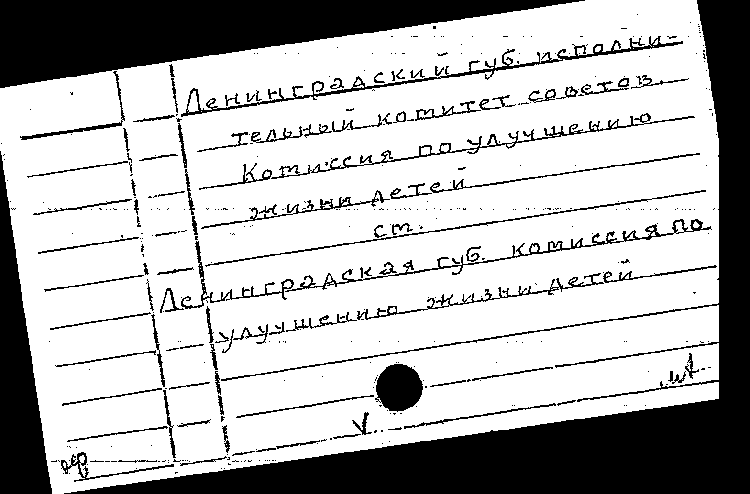 Ленинградский губ. исполни-
тельный комитет советов.
Комиссия по улучшению
жизни детей
см.
Ленинградская губ. комиссия по
улучшению жизни детей
V